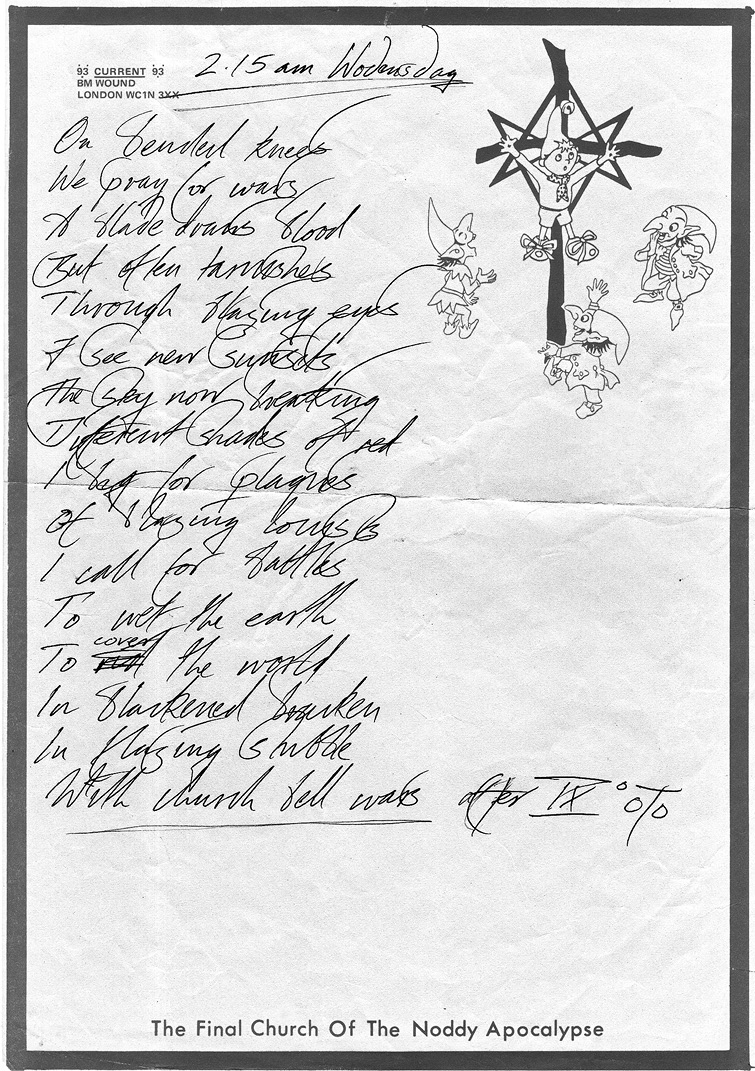 93 CURRENT 93
BM WOUND
LONDON WC1N 3XX
2.15 am Wednesday
On bended knees
We pray for wars
A blade draws blood
But often tarnishes
Through blazing eyes
I see new sunsets
The sky now breaking
Different shades of red
I beg for plagues
Of blazing locusts
I call for battles
To wet the earth
To cover the world
In blackened bracken
In blazing stubble
With church bell wars after IX
The Final Church Of The Noddy Apocalypse